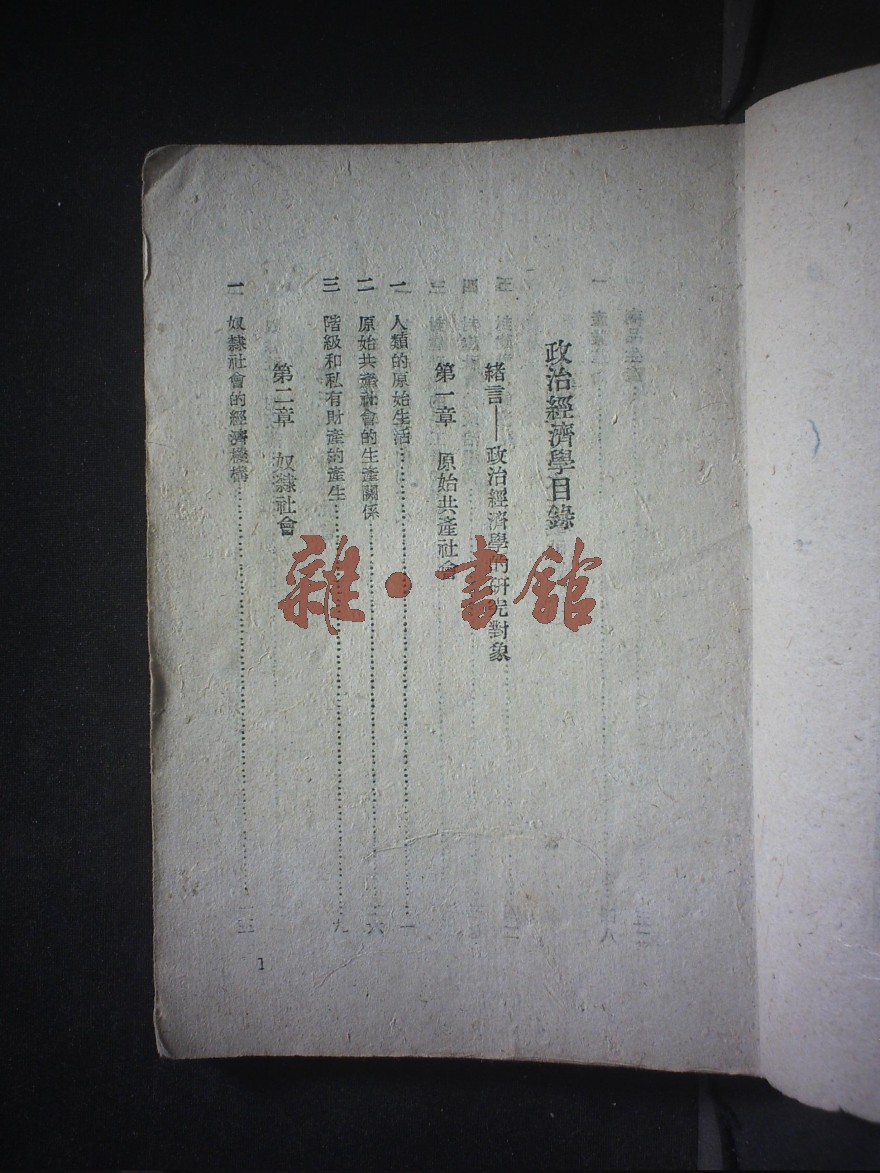 政治經濟學目錄
緒言——政治經濟學的研究對象
第一章 原始共產社會
一 人類的原始生活……一
二 原始共產社會的生產關係……六
三 階級和私有財產的產生……九
第二章 奴隸社會
一 奴隸社會的經濟機構……
1
雜·書館